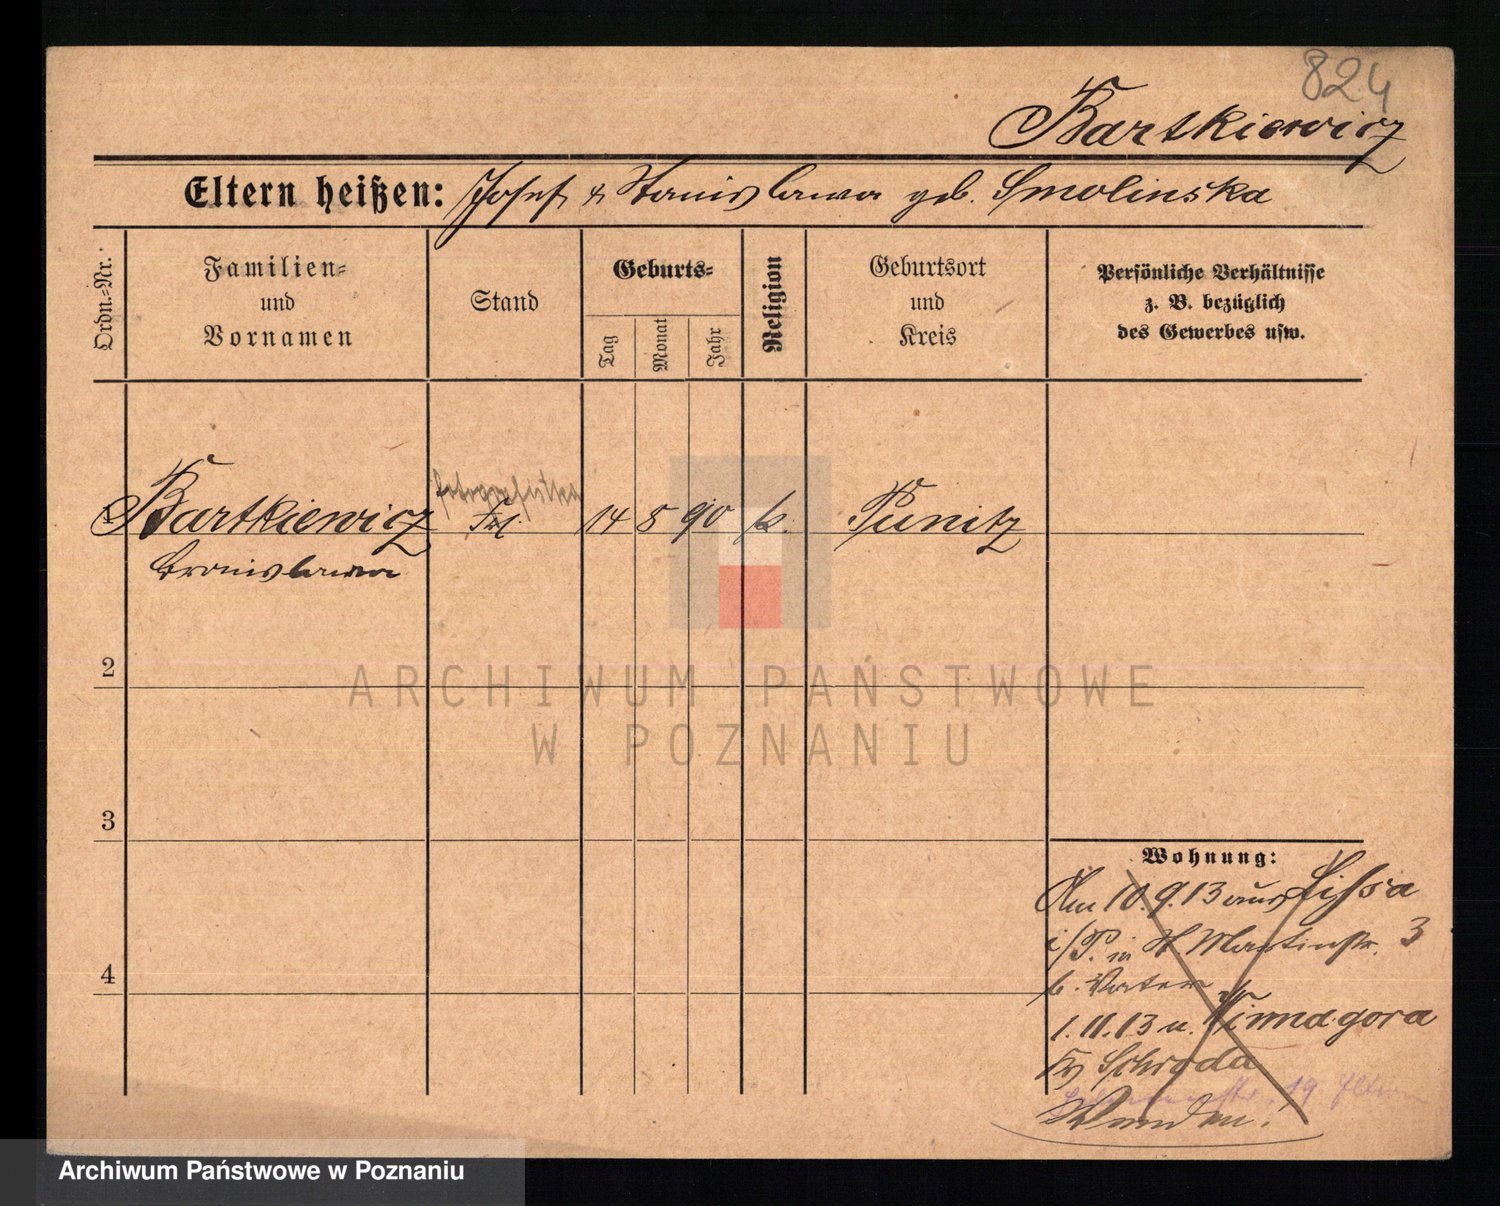 824
Bartkiewicz
Eltern heißen: Josef & Stanislawa geb. Smolinska
Ordn.-Nr.
Familien-
und
Vornamen
Stand
Geburts-
Tag
Monat
Jahr
Religion
Geburtsort
und
Kreis
Persönliche Verhältnisse
z. B. bezüglich
des Gewerbes usw.
1 Bartkiewicz Frl. 14 8 90 k. Punitz
Bronislawa
2
ARCHIWUM PAŃSTWOWE
W POZNANIU
3
Wohnung:
Am 10.9.13 aus Lissa
i/P. in St. Martinstr. 3
b. Vater
1.11.13 n. Winnagora
Kr Schroda
19 Eltern
Archiwum Państwowe w Poznaniu
4